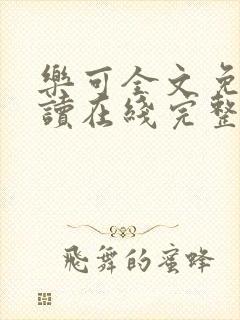 樂可全文免
讀在綫完整
飛舞的蜜蜂